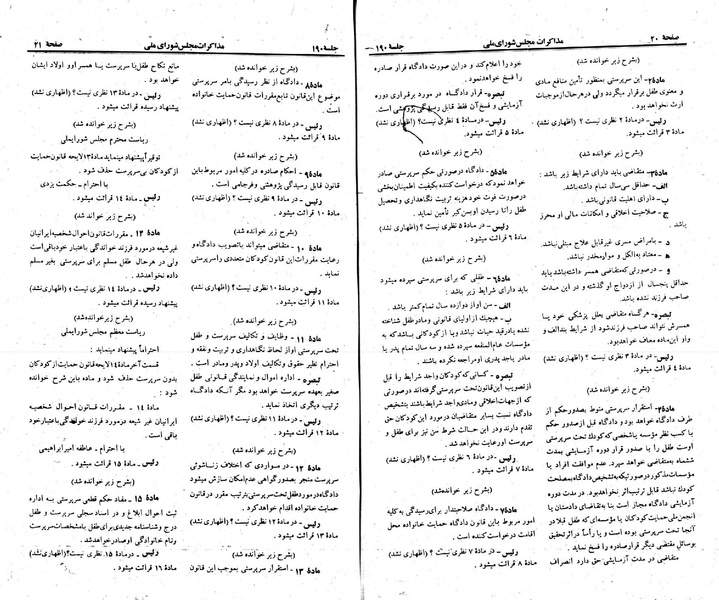 صفحهٔ ۲۰
مذاکرات مجلس شورای ملی
جلسهٔ ۱۹۰
(بشرح زیر خوانده شد)
ماده۲۵ـ این سرپرستی بمنظور تأمین منافع مادی
و معنوی طفل برقرار میگردد ولی درهرحال ازموجبات
ارث نخواهد بود.
رئیس ـ در مادهٔ ۲ نظری نیست؟ (اظهاری نشد)
مادهٔ ۳ قرائت میشود.
(بشرح زیر خوانده شد)
ماده۳۵ـ متقاضی باید دارای شرایط زیر باشد :
الف ـ حداقل سی سال تمام داشته باشد.
ب ـ دارای اهلیت قانونی باشد.
ج ـ صلاحیت اخلاقی و امکانات مالی او محرز
باشد .
د ـ بامراض مسری غیرقابل علاج مبتلی نباشد.
ه ـ معتاد به الکل و موادمخدر نباشد.
و ـ درصورتی که متقاضی همسر داشته باشد باید
حداقل پنجسال از ازدواج او گذشته و در این مدت
صاحب فرزند نشده باشد.
تبصره ـ هرگاه متقاضی بعلل پزشکی خود یا
همسرش نتواند صاحب فرزند شود از شرایط بند الف و
و او این ماده معاف خواهد بود.
رئیس ـ در مادهٔ ۳ نظری نیست؟ (اظهاری نشد)
مادهٔ ۴ قرائت میشود.
(بشرح زیر خوانده شد)
ماده۴۵ـ استقرار سرپرستی منوط بصدور حکم از
طرف دادگاه خواهد بود و دادگاه قبل از صدور حکم
با کسب نظر مؤسسه یا شخصی که کودک تحت سرپرستی
اوست طفل را با صدور قرار دوره آزمایشی بمدت
ششماه به متقاضی خواهد سپرد. عدم موافقت افراد یا
مؤسسات مذکور در صورتیکه به تشخیص دادگاه بمصلحت
کودک نباشد قابل ترتیب اثر نخواهد بود. در مدت دوره
آزمایشی دادگاه مجاز است بنا به تقاضای دادستان یا
انجمن ملی حمایت کودکان یا مؤسسه‌ای که طفل قبلا در
آنجا تحت سرپرستی بوده است و یا رأساً در اثر تحقیق
بوسائل مقتضی دیگر قرار صادره را فسخ نماید.
متقاضی در مدت آزمایشی حق دارد انصراف
خود را اعلام کند و در این صورت دادگاه قرار صادره
را فسخ خواهد نمود.
تبصره ـ قرار دادگاه در مورد برقراری دوره
آزمایشی و فسخ آن فقط قابل رسیدگی پژوهشی است.
رئیس ـ در مادهٔ ۴ نظری نیست؟ (اظهاری نشد)
مادهٔ ۵ قرائت میشود.
(بشرح زیر خوانده شد)
ماده۵۵ـ دادگاه در صورتی حکم سرپرستی صادر
خواهد نمود که درخواست کننده بکیفیت اطمینان بخشی
در صورت فوت خود هزینه تربیت نگاهداری و تحصیل
طفل را تا رسیدن او بسن کبر تأمین نماید.
رئیس ـ در مادهٔ ۵ نظری نیست؟ (اظهاری نشد)
مادهٔ ۶ قرائت میشود.
(بشرح زیر خوانده شد)
ماده۶۵ـ طفلی که برای سرپرستی سپرده میشود
باید دارای شرایط زیر باشد :
الف ـ سن او از دوازده سال تمام کمتر باشد.
ب ـ هیچیک از اولیای قانونی و مادر طفل شناخته
نشده یا در قید حیات نباشد و یا از کودکانی باشد که به
مؤسسات عام المنفعه سپرده شده و سه سال تمام پدر یا
مادر یا جد پدری او مراجعه نکرده باشد.
تبصره ـ کسانی که کودکان واجد شرایط را قبل
از تصویب این قانون تحت سرپرستی گرفته‌اند در صورتی
که از جهات اخلاقی و مادی واجد شرایط باشند بتشخیص
دادگاه نسبت بسایر متقاضیان در مورد این کودکان حق
تقدم دارند و در این حالت شرط سن نیز برای طفل و
سرپرست او رعایت نخواهد شد.
رئیس ـ در مادهٔ ۶ نظری نیست؟ (اظهاری نشد)
مادهٔ ۷ قرائت میشود.
(بشرح زیر خوانده شد)
ماده۷۵ـ دادگاه صلاحیتدار برای رسیدگی به کلیه
امور مربوط باین قانون دادگاه حمایت خانواده محل
اقامت درخواست کننده است.
رئیس ـ در مادهٔ ۷ نظری نیست؟ (اظهاری نشد)
مادهٔ ۸ قرائت میشود.
جلسهٔ ۱۹۰
مذاکرات مجلس شورای ملی
صفحهٔ ۲۱
(بشرح زیر خوانده شد)
ماده۸۵ـ دادگاه از نظر رسیدگی بامر سرپرستی
موضوع این قانون تابع مقررات قانون حمایت خانواده
است .
رئیس ـ در مادهٔ ۸ نظری نیست؟ (اظهاری نشد)
مادهٔ ۹ قرائت میشود .
(بشرح زیر خوانده شد)
ماده۹۵ـ احکام صادره در کلیه امور مربوط باین
قانون قابل رسیدگی پژوهشی و فرجامی است.
رئیس ـ در مادهٔ ۹ نظری نیست؟ (اظهاری نشد)
مادهٔ ۱۰ قرائت میشود .
(بشرح زیر خوانده شد)
مادهٔ ۱۰ ـ متقاضی میتواند باتصویب دادگاه و
رعایت مقررات این قانون کودکان متعددی را سرپرستی
نماید.
رئیس ـ در مادهٔ ۱۰ نظری نیست؟ (اظهاری نشد)
مادهٔ ۱۱ قرائت میشود .
(بشرح زیر خوانده شد)
مادهٔ ۱۱ ـ وظایف و تکالیف سرپرست و طفل
تحت سرپرستی او از لحاظ نگاهداری و تربیت و نفقه و
احترام نظیر حقوق و تکالیف اولاد و پدر و مادر است .
تبصره ـ اداره اموال و نمایندگی قانونی طفل
صغیر بعهده سرپرست خواهد بود مگر آنکه دادگاه
ترتیب دیگری اتخاذ نماید.
رئیس ـ در مادهٔ ۱۱ نظری نیست؟ (اظهاری نشد)
مادهٔ ۱۲ قرائت میشود .
(بشرح زیر خوانده شد)
مادهٔ ۱۲ ـ در مواردی که اختلاف زناشوئی
سرپرست منجر بصدور گواهی عدم امکان سازش میشود
دادگاه در مورد طفل تحت سرپرستی بترتیب مقرر در قانون
حمایت خانواده اقدام خواهد کرد .
رئیس ـ در مادهٔ ۱۲ نظری نیست؟ (اظهاری نشد)
مادهٔ ۱۳ قرائت میشود .
(بشرح زیر خوانده شد)
مادهٔ ۱۳ ـ استقرار سرپرستی بموجب این قانون
مانع نکاح طفل با سرپرست یا همسر او و اولاد ایشان
خواهد بود .
رئیس ـ در مادهٔ ۱۳ نظری نیست؟ (اظهاری نشد)
پیشنهاد رسیده قرائت میشود .
(بشرح زیر خوانده شد)
ریاست محترم مجلس شورایملی
توقیر آ پیشنهاد مینماید مادهٔ ۱۳ لایحه قانون حمایت
از کودکان بی سرپرست حذف شود .
با احترام ـ حکمت یزدی
رئیس ـ مادهٔ ۱۴ قرائت میشود .
(بشرح زیر خوانده شد)
مادهٔ ۱۴ ـ مقررات قانون احوال شخصیه ایرانیان
غیر شیعه در مورد فرزند خواندگی باعتبار خود باقی است
ولی در هر حال طفل مسلم برای سرپرستی بغیر مسلم
داده نخواهد شد .
رئیس ـ در مادهٔ ۱۴ نظری نیست؟ (اظهاری نشد)
پیشنهاد رسیده قرائت میشود .
(بشرح زیر خوانده شد)
ریاست معظم مجلس شورایملی
احتراماً پیشنهاد مینماید :
قسمت آخر مادهٔ ۱۴ لایحه قانون حمایت از کودکان
بدون سرپرست حذف شود و ماده باین شرح خوانده
شود :
مادهٔ ۱۴ ـ مقررات قانون احوال شخصیه
ایرانیان غیر شیعه در مورد فرزند خواندگی باعتبار خود
باقی است .
با احترام ـ عاطفه امیر ابراهیمی
رئیس ـ مادهٔ ۱۵ قرائت میشود .
(بشرح زیر خوانده شد)
مادهٔ ۱۵ ـ مفاد حکم قطعی سرپرستی به اداره
ثبت احوال ابلاغ و در اسناد سجلی سرپرست و طفل
درج و شناسنامه جدیدی برای طفل با مشخصات سرپرست
و نام خانوادگی او صادر خواهد شد.
رئیس ـ در مادهٔ ۱۵ نظری نیست؟ (اظهاری نشد)
مادهٔ ۱۶ قرائت میشود .